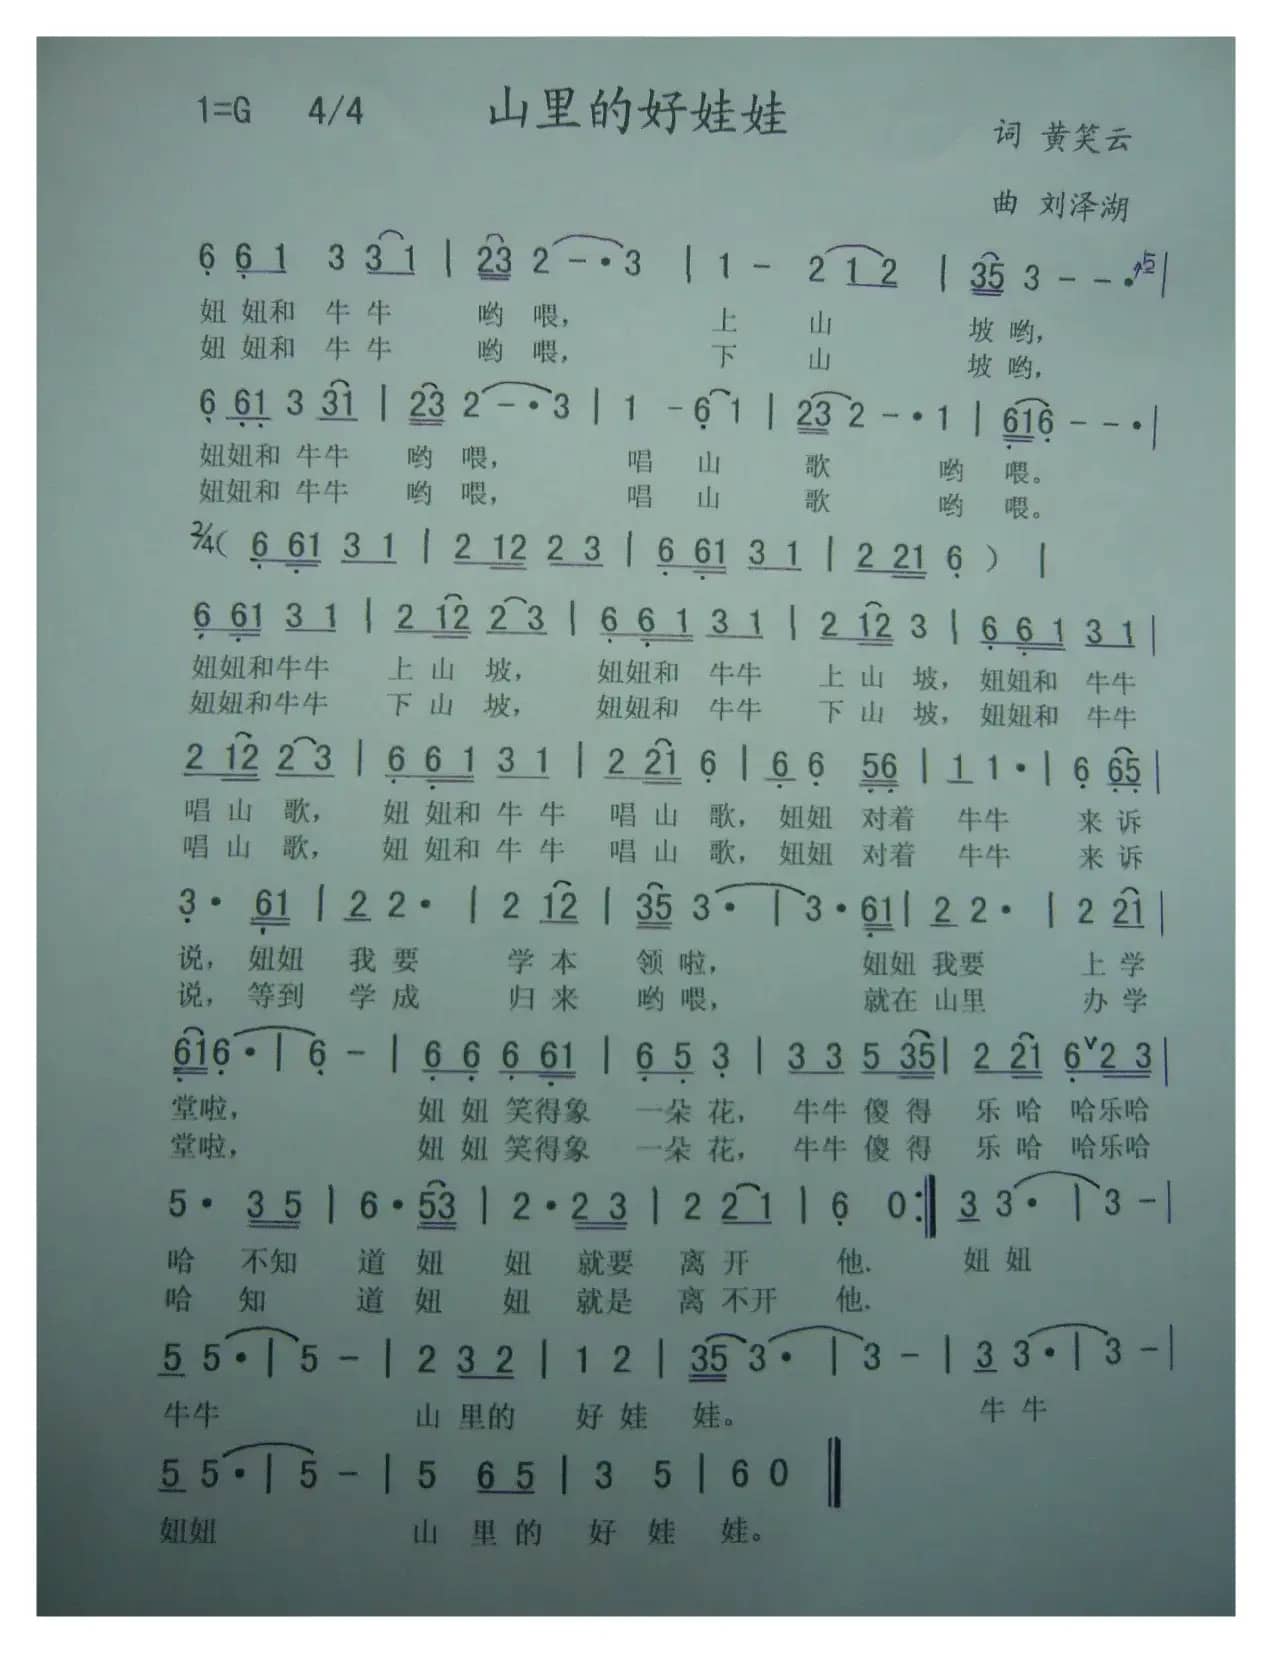 1=G 4/4 山里的好娃娃
词 黄笑云
曲 刘泽湖
6 6 1 3 3 1 | 23 2 - · 3 | 1 - 2 1 2 | 35 3 - - · 52 |
妞 妞和 牛 牛 哟 喂， 上 山 坡 哟，
妞 妞和 牛 牛 哟 喂， 下 山 坡 哟，
6 61 3 31 | 23 2 - · 3 | 1 - 6 1 | 23 2 - · 1 | 616 - - · |
妞妞和 牛牛 哟 喂， 唱 山 歌 哟 喂。
妞妞和 牛牛 哟 喂， 唱 山 歌 哟 喂。
2/4 ( 6 61 3 1 | 2 12 2 3 | 6 61 3 1 | 2 21 6 ) |
6 61 3 1 | 2 12 2 3 | 6 6 1 3 1 | 2 12 3 | 6 6 1 3 1 |
妞妞和牛牛 上 山 坡， 妞妞和 牛牛 上 山 坡， 妞妞和 牛牛
妞妞和牛牛 下 山 坡， 妞妞和 牛牛 下 山 坡， 妞妞和 牛牛
2 12 2 3 | 6 6 1 3 1 | 2 21 6 | 6 6 56 | 1 1 · | 6 65 |
唱 山 歌， 妞 妞和 牛 牛 唱 山 歌， 妞妞 对着 牛牛 来 诉
唱 山 歌， 妞 妞和 牛 牛 唱 山 歌， 妞妞 对着 牛牛 来 诉
3 · 61 | 2 2 · | 2 12 | 35 3 · | 3 · 61 | 2 2 · | 2 21 |
说， 妞妞 我 要 学 本 领 啦， 妞妞 我要 上 学
说， 等到 学 成 归 来 哟 喂， 就在 山里 办 学
616 · | 6 - | 6 6 6 61 | 6 5 3 | 3 3 5 35 | 2 21 6 v 2 3 |
堂啦， 妞 妞 笑得象 一朵 花， 牛牛 傻 得 乐 哈 哈乐哈
堂啦， 妞 妞 笑得象 一朵 花， 牛牛 傻 得 乐 哈 哈乐哈
5 · 3 5 | 6 · 53 | 2 · 2 3 | 2 2 1 | 6 0 :| 3 3 · | 3 - |
哈 不知 道 妞 妞 就要 离 开 他. 妞 妞
哈 知 道 妞 妞 就是 离 不开 他.
5 5 · | 5 - | 2 3 2 | 1 2 | 35 3 · | 3 - | 3 3 · | 3 - |
牛牛 山 里的 好 娃 娃。 牛 牛
5 5 · | 5 - | 5 6 5 | 3 5 | 6 0 ‖
妞妞 山 里 的 好 娃 娃。